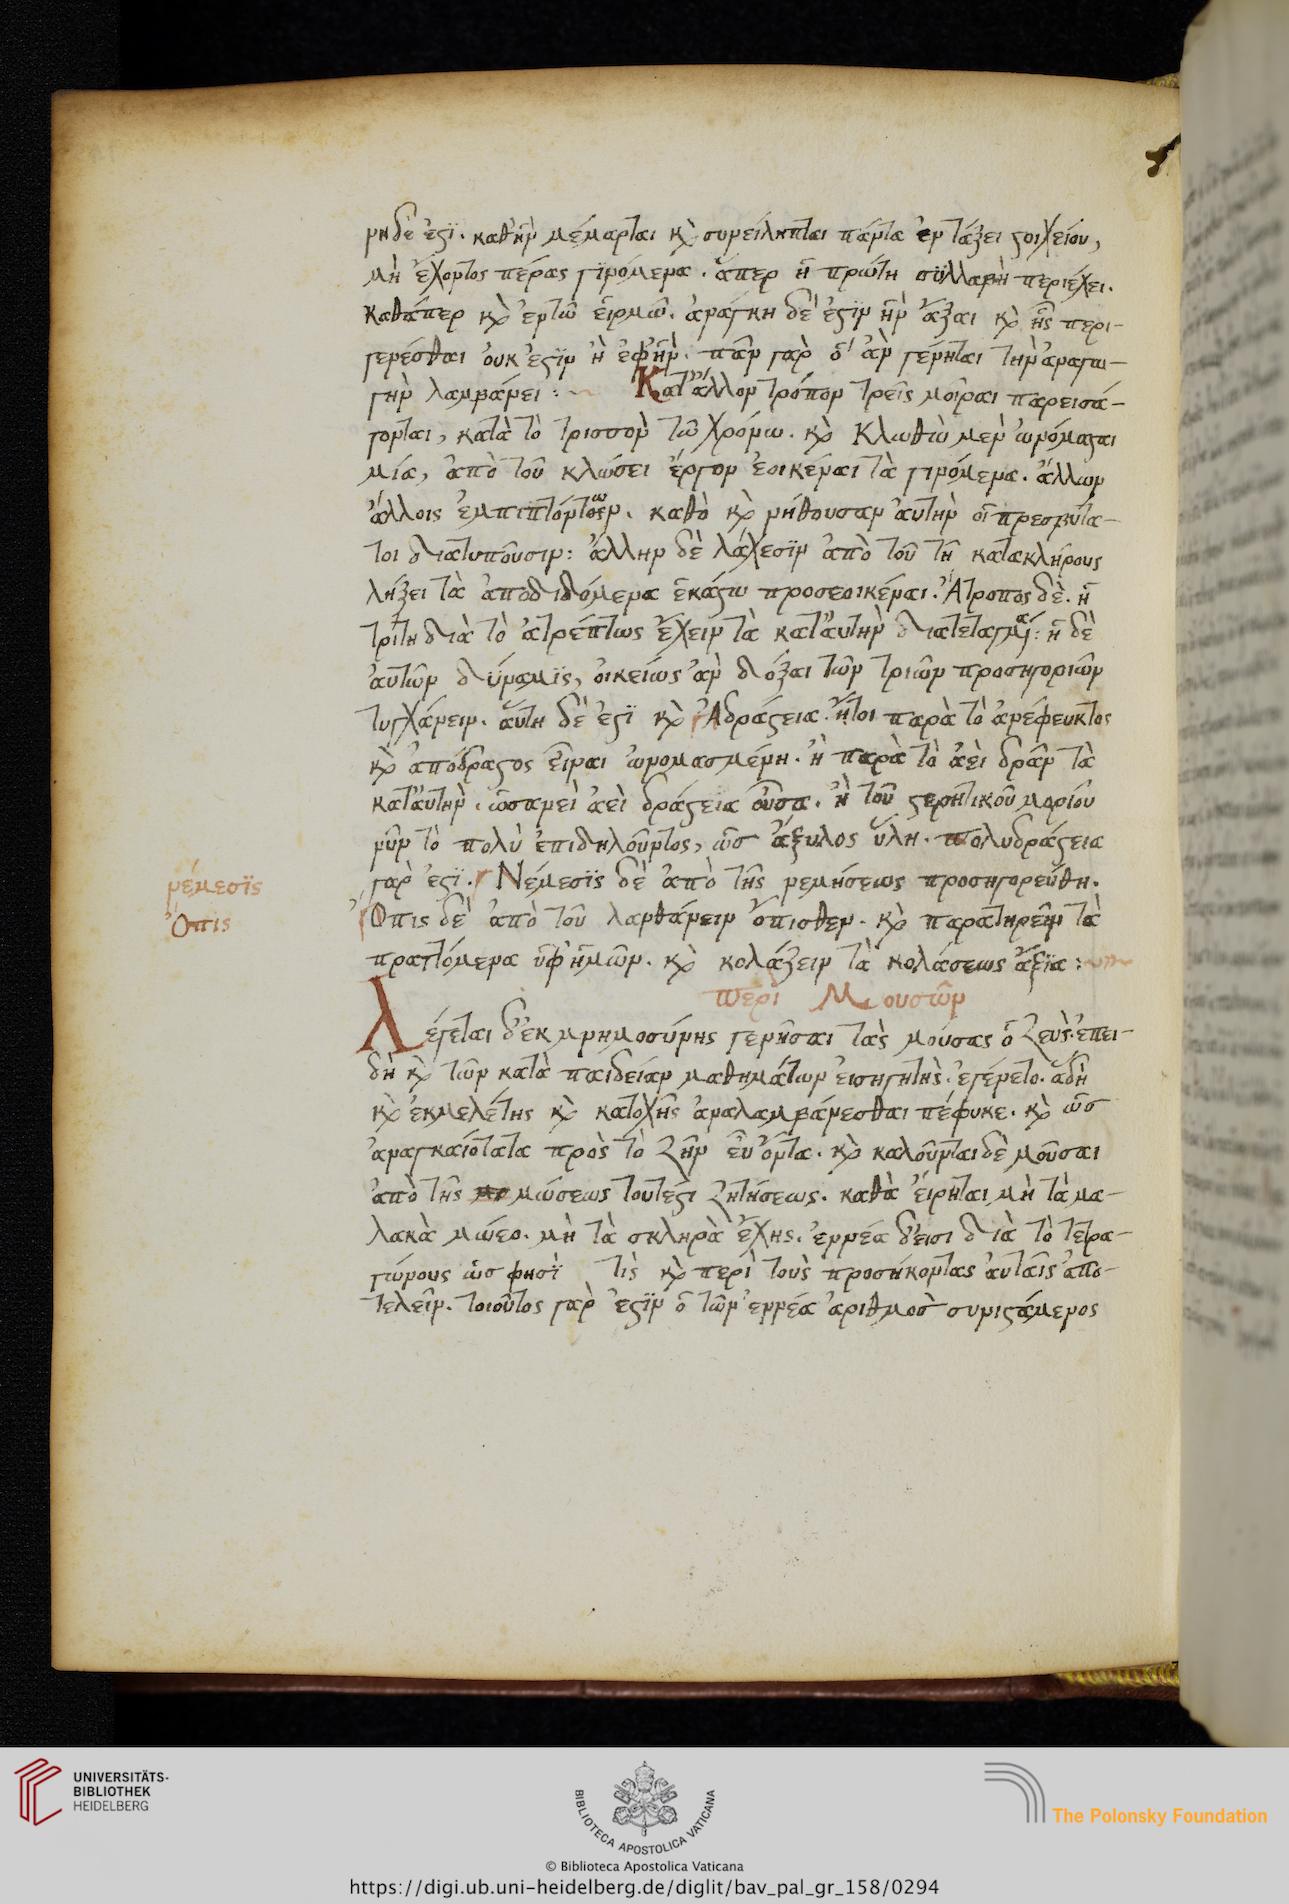 νηδέ ἐστϊ. καθ' ἣν μέμαρται κὶ συνείληπται πάντα ἐν τάξει στοιχείου,
μὴ ἔχοντος πέρας γϊνόμενα. ἅπερ ἡ πρώτη σϋλλαβὴ περιέχει.
καθάπερ κὶ ἐν τῶ εἱρμῶ. ἀνάγκη δέ ἐστϊν ἣν ἄξαι κὶ ἧς περι-
γενέσθαι οὐκ ἔστϊν ἢ ἐφ' ἣν. πᾶν γὰρ ὅ ἂν γένηται τὴν ἀναγω-
γὴν λαμβάνει: Κατ' ἄλλον τρόπον τρεῖς μοῖραι παρεισά-
γονται, κατὰ τὸ τρισσὸν τῶ χρόνω. κὶ Κλωθὼ μὲν ὠνόμασται
μία, ἀπὸ τοῦ κλώσει ἔργον ἐοικέναι τὰ γινόμενα. ἄλλων
ἄλλοις ἐμπιπτόντων. καθὸ κὶ νήθουσαν αὐτὴν οἱ πρεσβύτα-
τοι διατυποῦσιν: ἄλλην δὲ λάχεσϊν ἀπὸ τοῦ τῆ κατακλήρους
λήξει τὰ ἀποδιδόμενα ἑκάστω προσεοικέναι. Ἄτροπος δὲ. ἡ
τρίτη διὰ τὸ ἀτρέπτως ἔχειν τὰ κατ' αὐτὴν διατεταγμένα: ἡ δὲ
αὐτῶν δϋναμϊς, οἰκείως ἂν δόξαι τῶν τριῶν προσηγοριῶν
τυγχάνειν. αὕτη δέ ἐστϊ κὶ Ἀδράστεια. ἤτοι παρὰ τὸ ἀνέφευκτος
κὶ ἀπόδραστος εἶναι ὠνομασμένη. ἢ παρὰ τὸ ἀεὶ δρᾶν τὰ
κατ' αὐτὴν. ὡσανεὶ ἀεὶ δράστεια οὖσα. ἢ τοῦ στερητικοῦ μορίου
νῦν τὸ πολὺ ἐπιδηλοῦντος, ὡσ ἄξυλος ὕλη. πολυδράστεια
γάρ ἐστϊ. Νέμεσϊς δὲ ἀπὸ τῆς νεμήσεως προσηγορεύθη.
νέμεσϊς
Ὄπις
Ὄπις δὲ ἀπὸ τοῦ λανθάνειν ὄπισθεν. κὶ παρατηρεῖν τὰ
πραττόμενα ὑφ' ἡμῶν. κὶ κολάζειν τὰ κολάσεως ἄξϊα:
περὶ Μουσῶν
Λέγεται δ' ἐκ μνημοσύνης γενῆσαι τὰς μούσας ὁ Ζεὺς. ἐπει-
δὴ κὶ τῶν κατὰ παιδείαν μαθημάτων εἰσηγητὴς. ἐγένετο. ἅδὴ
κὶ ἐκμελέτης κὶ κατοχῆς ἀναλαμβάνεσθαι πέφυκε. κὶ ὡσ
ἀναγκαιότατα πρὸς τὸ Ζῆν εὖ ὄντα. κὶ καλοῦνται δὲ μοῦσαι
ἀπὸ τῆς μώσεως τουτέστι ζητήσεως. καθὰ εἴρηται μὴ τὰ μα-
λακὰ μώεο. μὴ τὰ σκληρὰ ἔχης. ἐννέα δ' εἰσι διὰ τὸ τετρα-
γώνους ὥσ φησϊ τὶς κὶ περὶ τοὺς προσήκοντας αὐταῖς ἀπο-
τελεῖν. τοιοῦτος γάρ ἐστϊν ὁ τῶν ἐννέα ἀριθμοσ συνιστάμενος
UNIVERSITÄTS-
BIBLIOTHEK
HEIDELBERG
BIBLIOTECA APOSTOLICA VATICANA
The Polonsky Foundation
© Biblioteca Apostolica Vaticana
https://digi.ub.uni-heidelberg.de/diglit/bav_pal_gr_158/0294